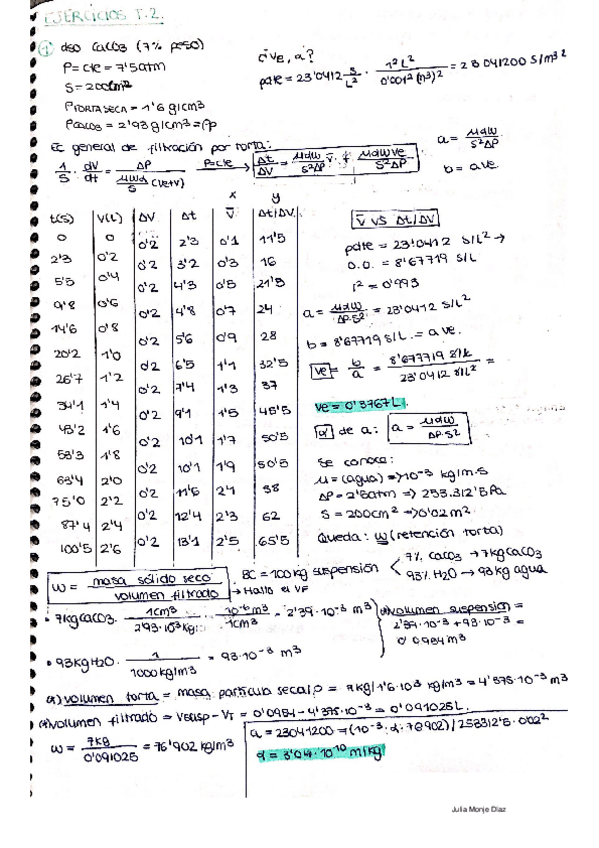 EJERCICIOS T.2.
① dso CaCO3 (7% peso)
P = cte = 7'5atm
S = 200cm²
ρTORTA SECA = 1'6 g/cm3
ρCaCO3 = 2'93 g/cm3 = ρp
¿ve, α?
pdte = 23'0412 s/L² · 1² L² / 0'001² (m3)² = 23041200 s/m3 2
Ec general de filtración por torta:
1/S · dV/dt = ΔP / μαw/S (Ve+V) P=cte → Δt/ΔV = μαw/S²ΔP V̄ + μαwve/S²ΔP
a = μαw/S²ΔP
b = a·ve
x y
t(s) V(L) ΔV Δt V̄ Δt/ΔV
0 0 0'2 2'3 0'1 11'5
2'3 0'2 0'2 3'2 0'3 16
5'5 0'4 0'2 4'3 0'5 21'5
9'8 0'6 0'2 4'8 0'7 24
14'6 0'8 0'2 5'6 0'9 28
20'2 1'0 0'2 6'5 1'1 32'5
26'7 1'2 0'2 7'4 1'3 37
34'1 1'4 0'2 9'1 1'5 45'5
43'2 1'6 0'2 10'1 1'7 50'5
53'3 1'8 0'2 10'1 1'9 50'5
63'4 2'0 0'2 11'6 2'1 58
75'0 2'2 0'2 12'4 2'3 62
87'4 2'4 0'2 13'1 2'5 65'5
100'5 2'6
V̄ VS Δt/ΔV
pdte = 23'0412 s/L² →
O.O. = 8'67719 s/L
r² = 0'993
a = μαw/ΔP·S² = 23'0412 s/L²
b = 8'67719 s/L = a·ve.
ve = b/a = 8'677719 s/L / 23'0412 s/L² =
ve = 0'3767L.
α de a: a = μαw/ΔP·S²
Se conoce:
μ = (agua) => 10⁻³ kg/m·s
ΔP = 2'5atm => 253.312'5Pa
S = 200cm² → 0'02m²
Queda: w (retención torta)
w = masa sólido seco / volumen filtrado → Hallo el VF
BC = 100kg suspensión
7% CaCO3 → 7kgCaCO3
93% H2O → 93 kg agua
• 7kgCaCO3 · 1cm3 / 2'93·10⁻³kg · 10⁻⁶ m3 / 1cm3 = 2'39·10⁻³ m3
• 93kgH2O · 1 / 1000kg/m3 = 93·10⁻³ m3
volumen suspensión =
2'39·10⁻³ + 93·10⁻³ =
0'0954m3
volumen torta = masa partícula seca/ρ = 7kg/1'6·10³ kg/m3 = 4'375·10⁻³ m3
volumen filtrado = Vsusp - VT = 0'0954 - 4'375·10⁻³ = 0'091025L.
w = 7kg / 0'091025 = 76'902 kg/m3
a = 23041200 = (10⁻³·α·76902) / 253312'5·0'02²
α = 3'04·10¹⁰ m/kg
Julia Monje Díaz